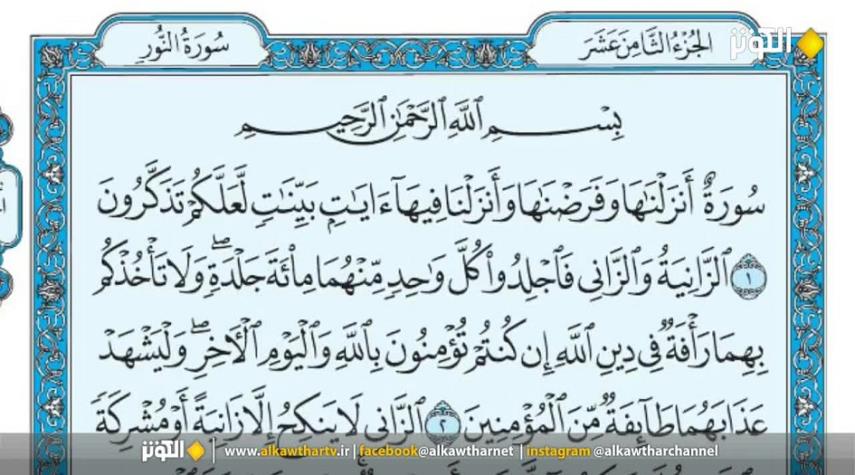 الجُزْءُ الثَّامِنَ عَشَرَ
سُورَةُ النُّورِ
الكوثر
بِسْمِ ٱللَّهِ ٱلرَّحْمَٰنِ ٱلرَّحِيمِ
سُورَةٌ أَنزَلْنَٰهَا وَفَرَضْنَٰهَا وَأَنزَلْنَا فِيهَآ ءَايَٰتٍۭ بَيِّنَٰتٍ لَّعَلَّكُمْ تَذَكَّرُونَ
١ ٱلزَّانِيَةُ وَٱلزَّانِى فَٱجْلِدُوا۟ كُلَّ وَٰحِدٍ مِّنْهُمَا مِا۟ئَةَ جَلْدَةٍ ۖ وَلَا تَأْخُذْكُم
بِهِمَا رَأْفَةٌ فِى دِينِ ٱللَّهِ إِن كُنتُمْ تُؤْمِنُونَ بِٱللَّهِ وَٱلْيَوْمِ ٱلْءَاخِرِ ۖ وَلْيَشْهَدْ
عَذَابَهُمَا طَآئِفَةٌ مِّنَ ٱلْمُؤْمِنِينَ ٢ ٱلزَّانِى لَا يَنكِحُ إِلَّا زَانِيَةً أَوْ مُشْرِكَةً
الكوثر www.alkawthartv.ir | facebook@alkawtharnet | instagram @alkawtharchannel